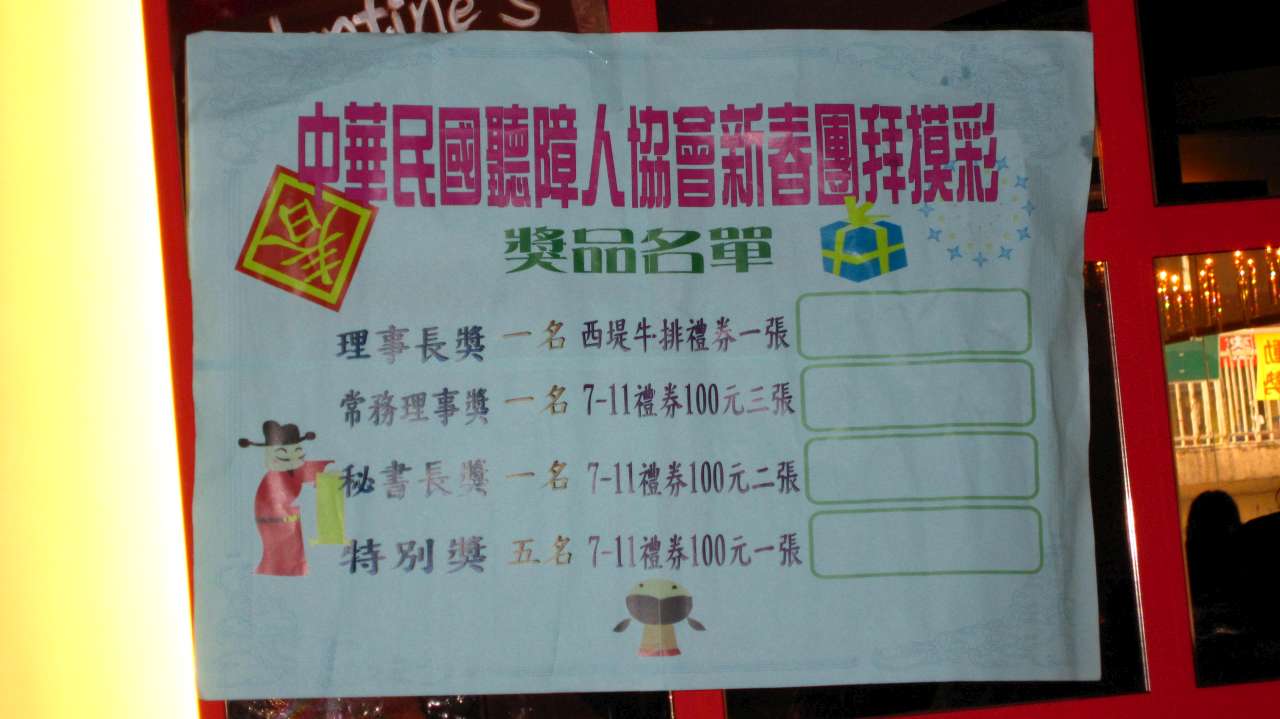 中華民國聽障人協會新春團拜摸彩
春
獎品名單
理事長獎 一名 西堤牛排禮券一張
常務理事獎 一名 7-11禮券100元三張
秘書長獎 一名 7-11禮券100元二張
特別獎 五名 7-11禮券100元一張